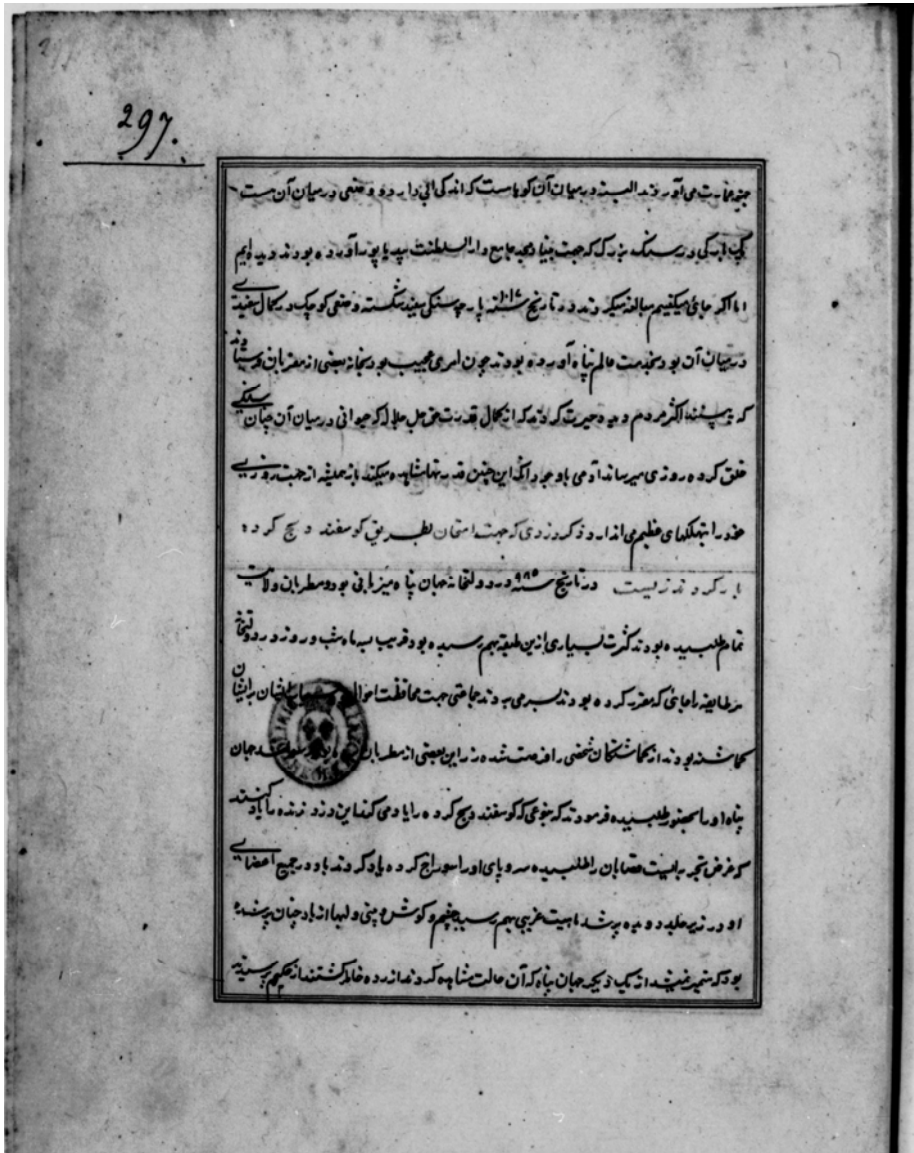 297.
جهة عمارت می آورند البته در میان آن کوهاست که اندکی آبی دارد و وضعی در میان آن هست
یک بزرگی در سنک بزرک که جهت بنیاد مسجد جامع دار السلطنت بیدیاپور آورده بودند دیده ایم
اما اکر جائی میکفتیم مبالغه میکردند در تاریخ سنه ۱۰۱۷ پارچه سنکی سفید شکسته وضعی کوچک در کمال سفیدی
در میان آن بود بخدمت عالم پناه آورده بودند چون امری عجیب بود بخانه بعضی از مقربان فرستادند
که به بینند اکثر مردم دیده حیرت کردند که از کمال قدرت حق جل جلاله که حیوانی در میان آن چنان سنکی
خلق کرده روزی میرساند آدمی با وجود آنکه این چنین قدرتها مشاهده میکند باز همیشه از جهت روزی
خود را بتهلکهای عظیم می اندازد ذکر دزدی که جهت امتحان بطریق کوسفند ذبح کرده
باد کردند نزیست در تاریخ سنه ۹۸۵ در دولتخانه جهان پناه میزبانی بود و مطربان ولایت
تمام طلبیده بودند کثرت بسیاری ازین طبقه بهم رسیده بود قریب سه ماه شب و روز در دولتخانه
هر طایفه را جائی که مقرر کرده بودند بسر می بردند جماعتی جهت محافظت اموال و ایشان را نشان
کماشته بودند از کماشتکان شخصی را فرصت شده زر این بعضی از مطربان جهان
پناه او را بحضور طلبیده فرمودند که بنوعی که کوسفند ذبح کرده را باد می کنند این دزد زنده را باد کنند
که غرض تجربه ایست قصابان را طلبیده سر و پای او را سوراخ کرده باد کردند باد در جمیع اعضای
او در زیر جلد دویده پر شد ماهیت غریبی بهم رسید چشم و کوش و بینی و لبها از باد چنان پر شده
بود که متمیز نمیشد از یک دیکر جهان پناه که آن حالت مشاهده کردند آزرده خاطر کشتند از حکیم پرسیدند